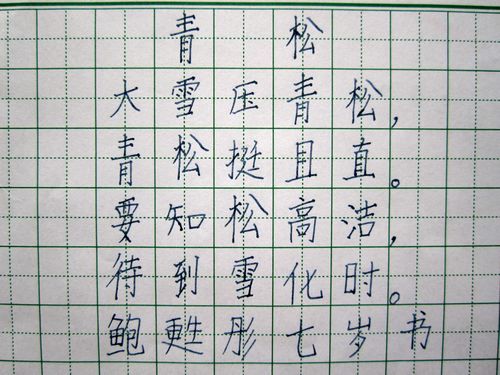 青松
大雪压青松，
青松挺且直。
要知松高洁，
待到雪化时。
鲍甦彤七岁书